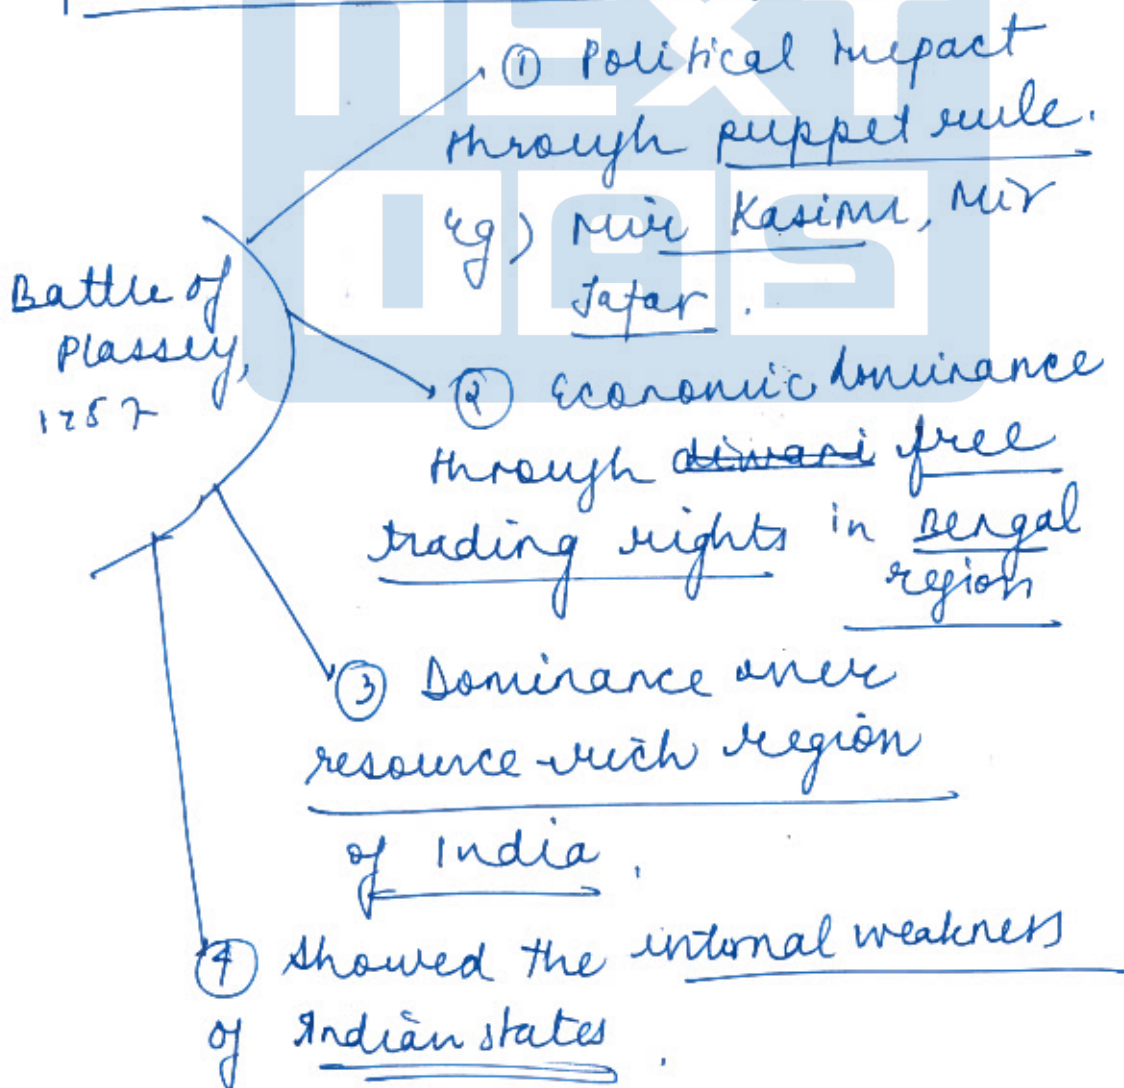 NEXT
IAS
① Political impact
through puppet rule.
eg) Mir Kasim, Mir
Jafar.
Battle of
Plassey,
1757
② Economic dominance
through diwani free
trading rights in Bengal
region
③ Dominance over
resource-rich region
of India.
④ Showed the internal weakness
of Indian states.